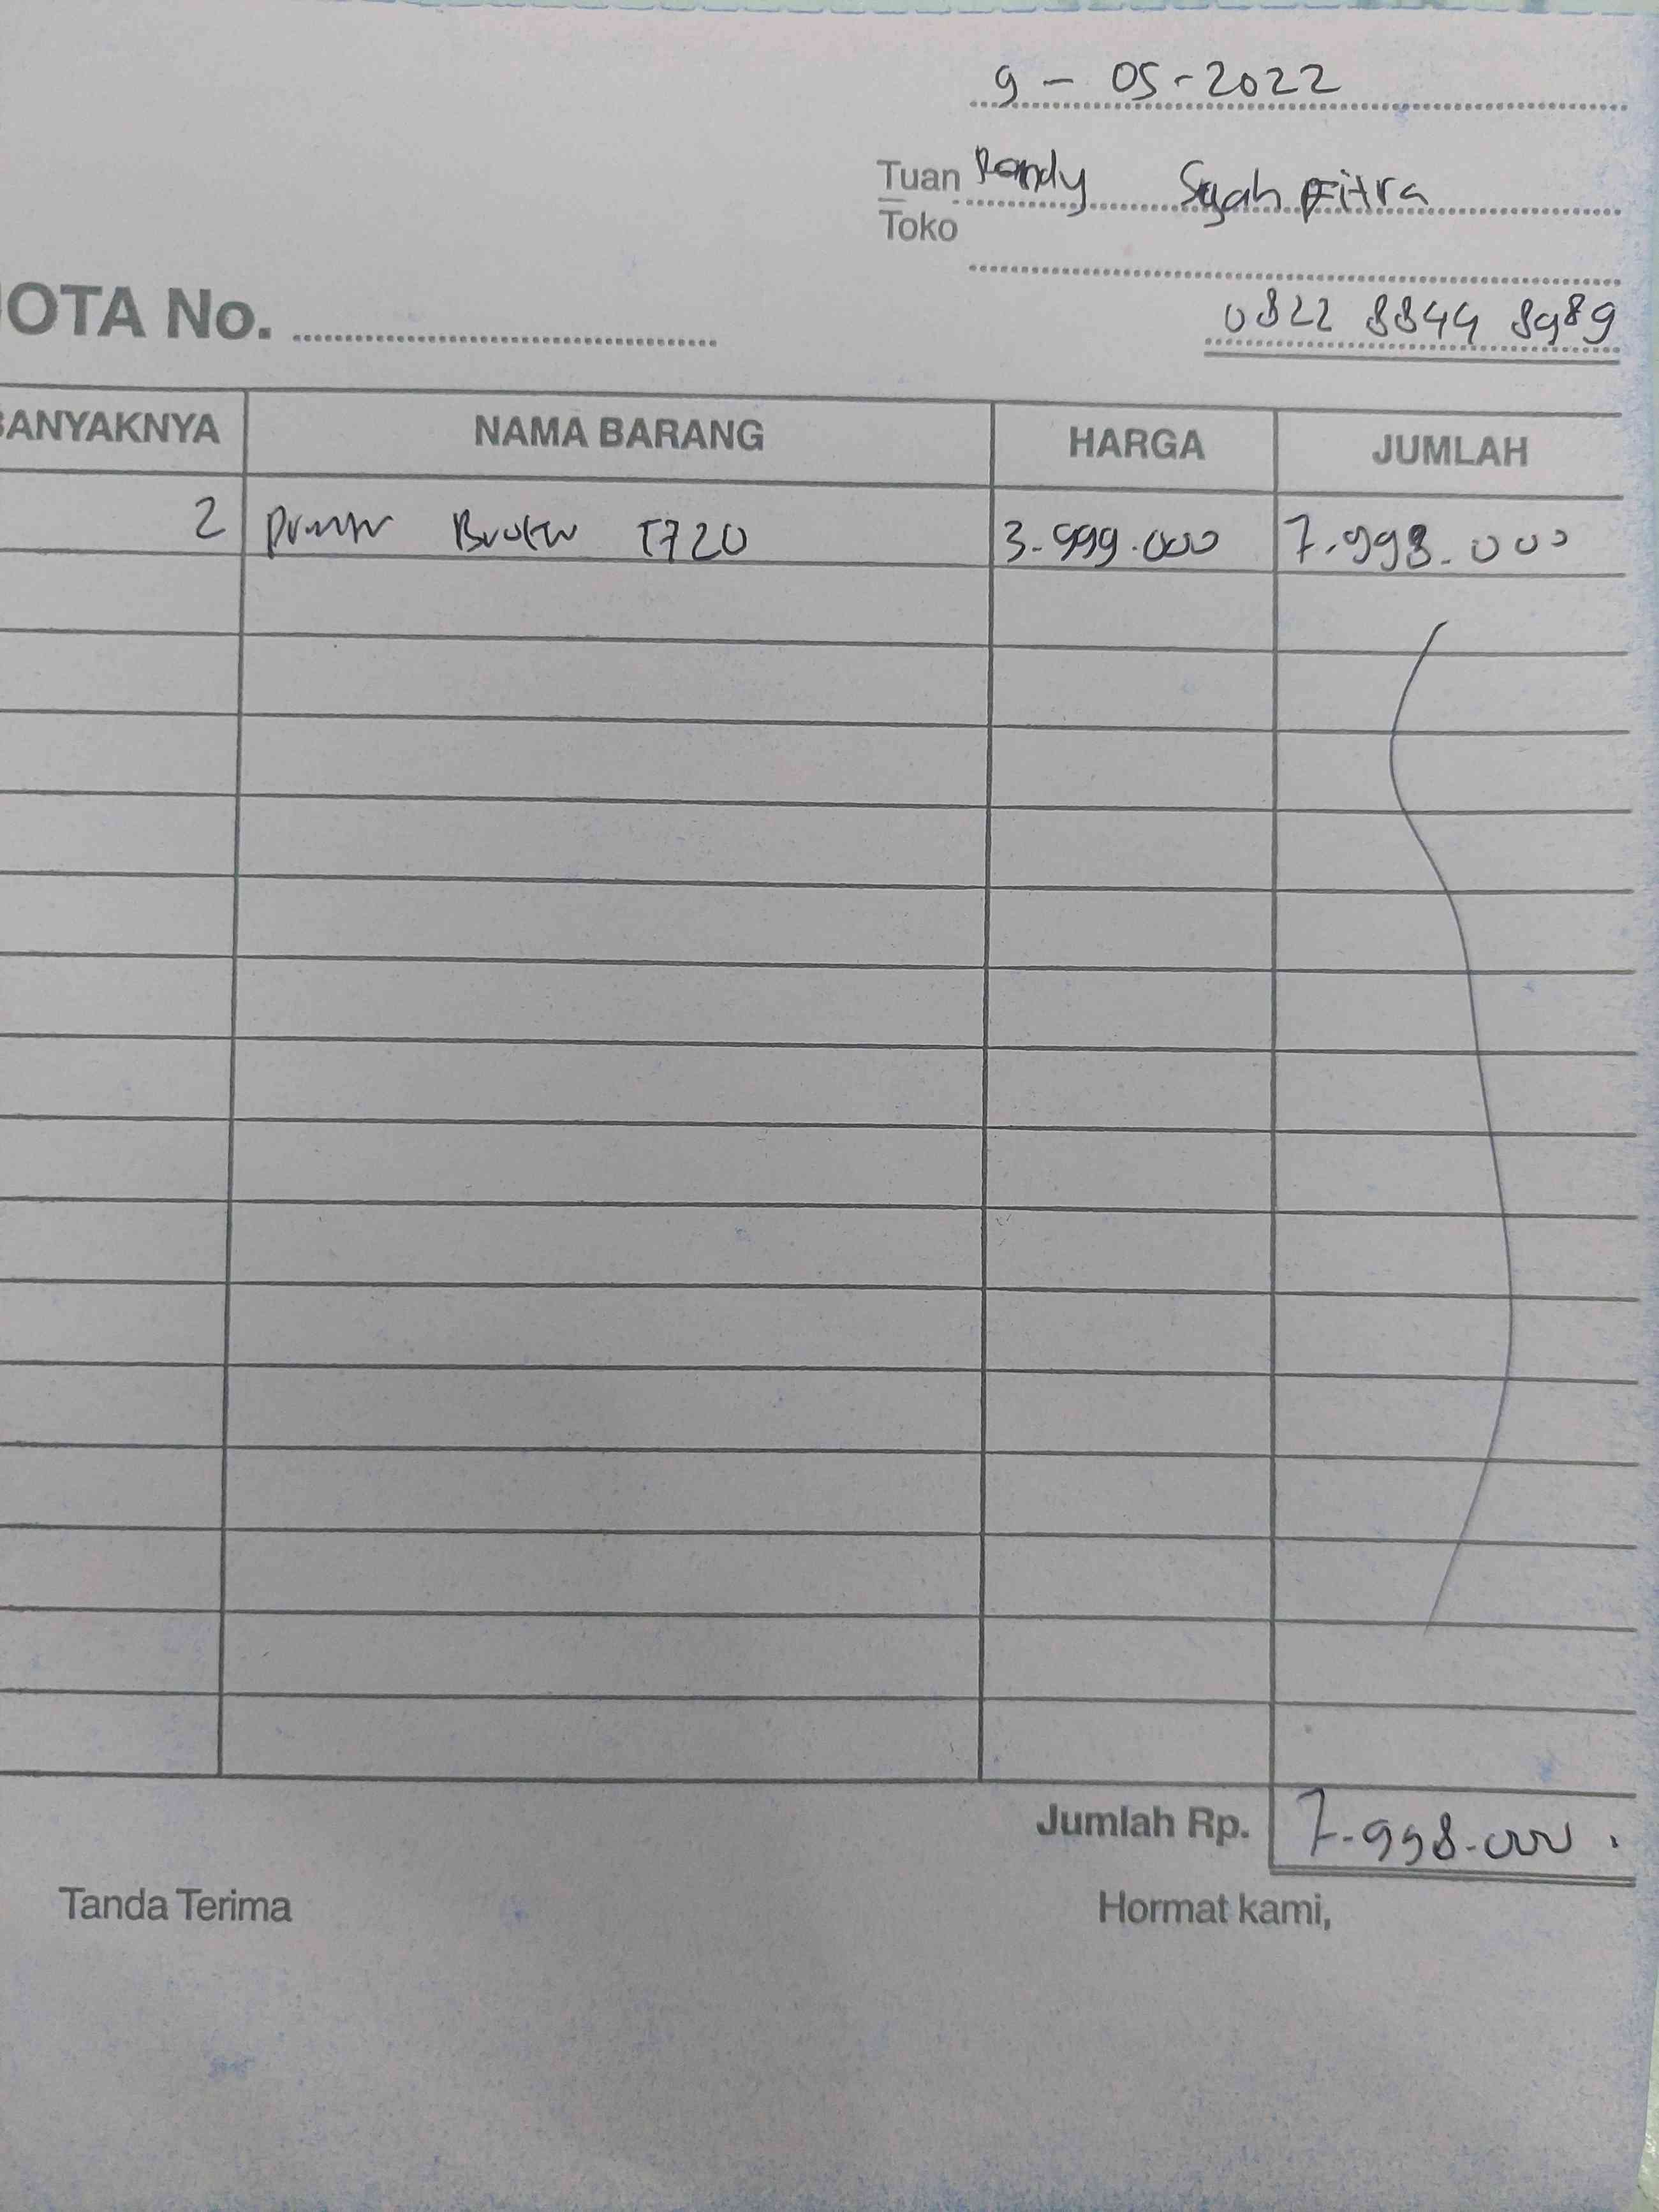 9 - 05 - 2022
Tuan Randy Syah Fitra
Toko
0822 8844 8989
OTA No.
BANYAKNYA NAMA BARANG HARGA JUMLAH
2 Printer Brother T720 3.999.000 7.998.000
Jumlah Rp. 7.998.000
Tanda Terima Hormat kami,